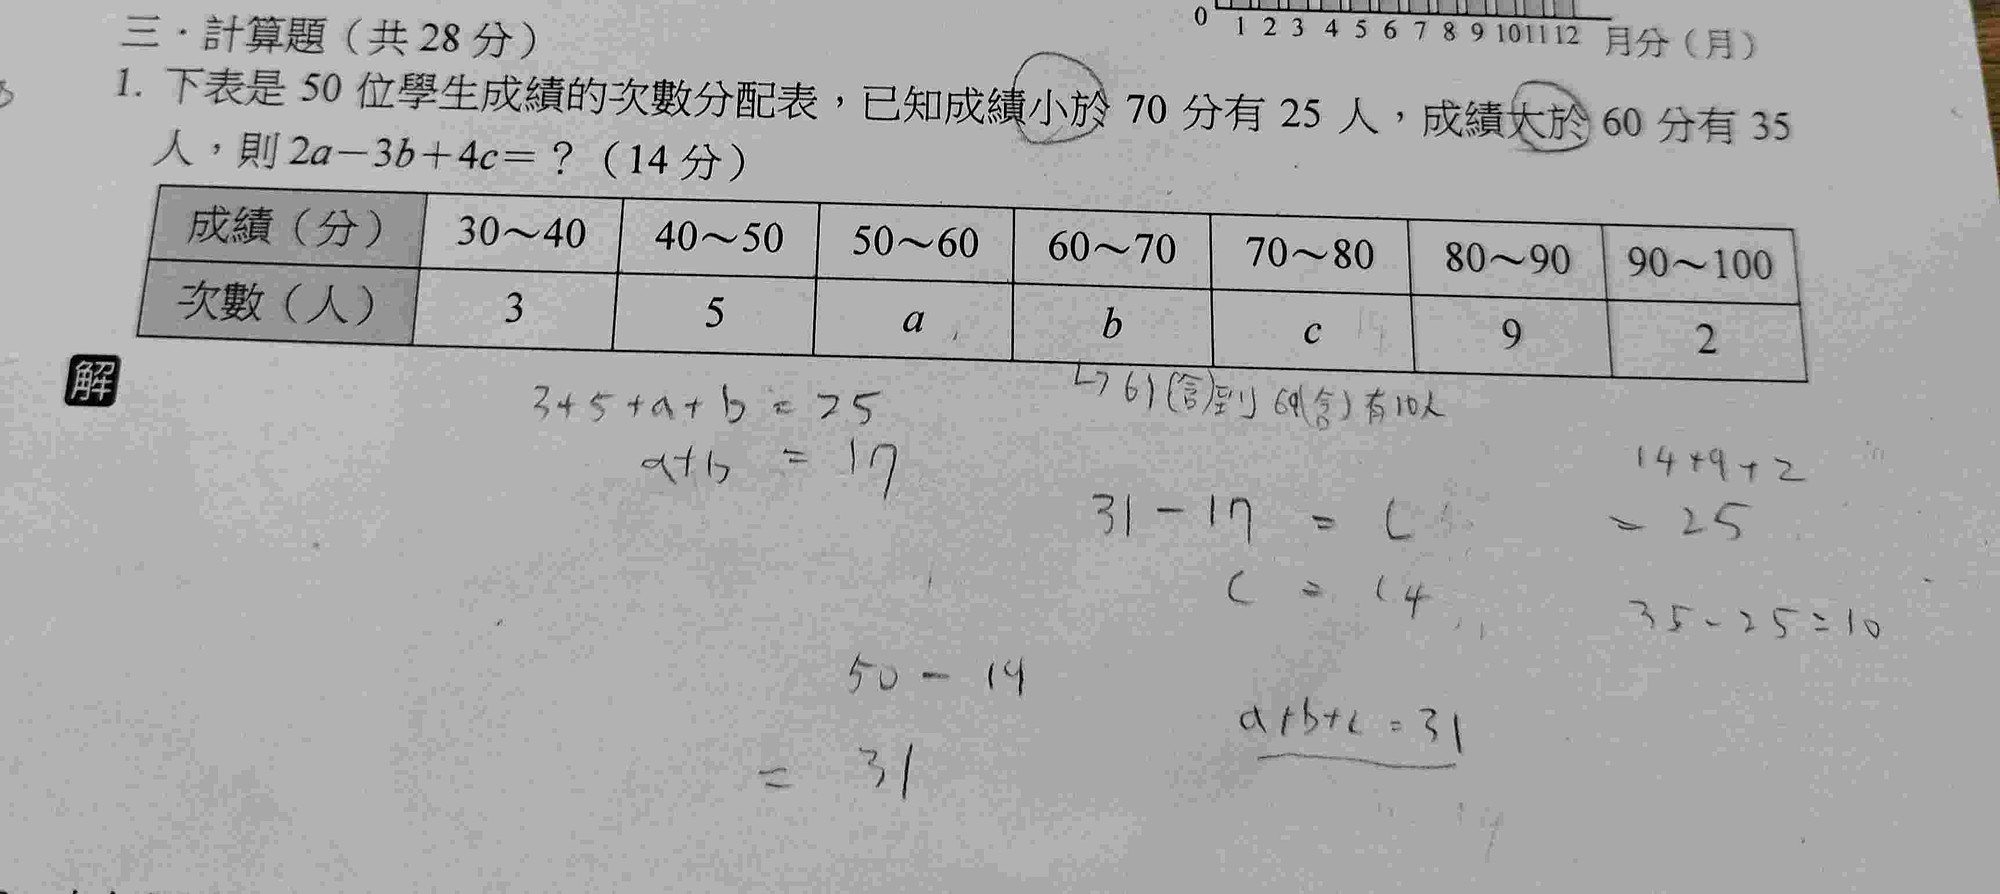 0 1 2 3 4 5 6 7 8 9 10 11 12 月分（月）
三．計算題（共 28 分）
1. 下表是 50 位學生成績的次數分配表，已知成績小於 70 分有 25 人，成績大於 60 分有 35
人，則 2a－3b＋4c＝？（14 分）
成績（分） 30～40 40～50 50～60 60～70 70～80 80～90 90～100
次數（人） 3 5 a b c 9 2
解
3+5+a+b=25
↳61(含)到69(含)有10人
a+b = 17
14+9+2
31-17 = c
= 25
c = 14
35-25=10
50 - 19
a+b+c=31
= 31